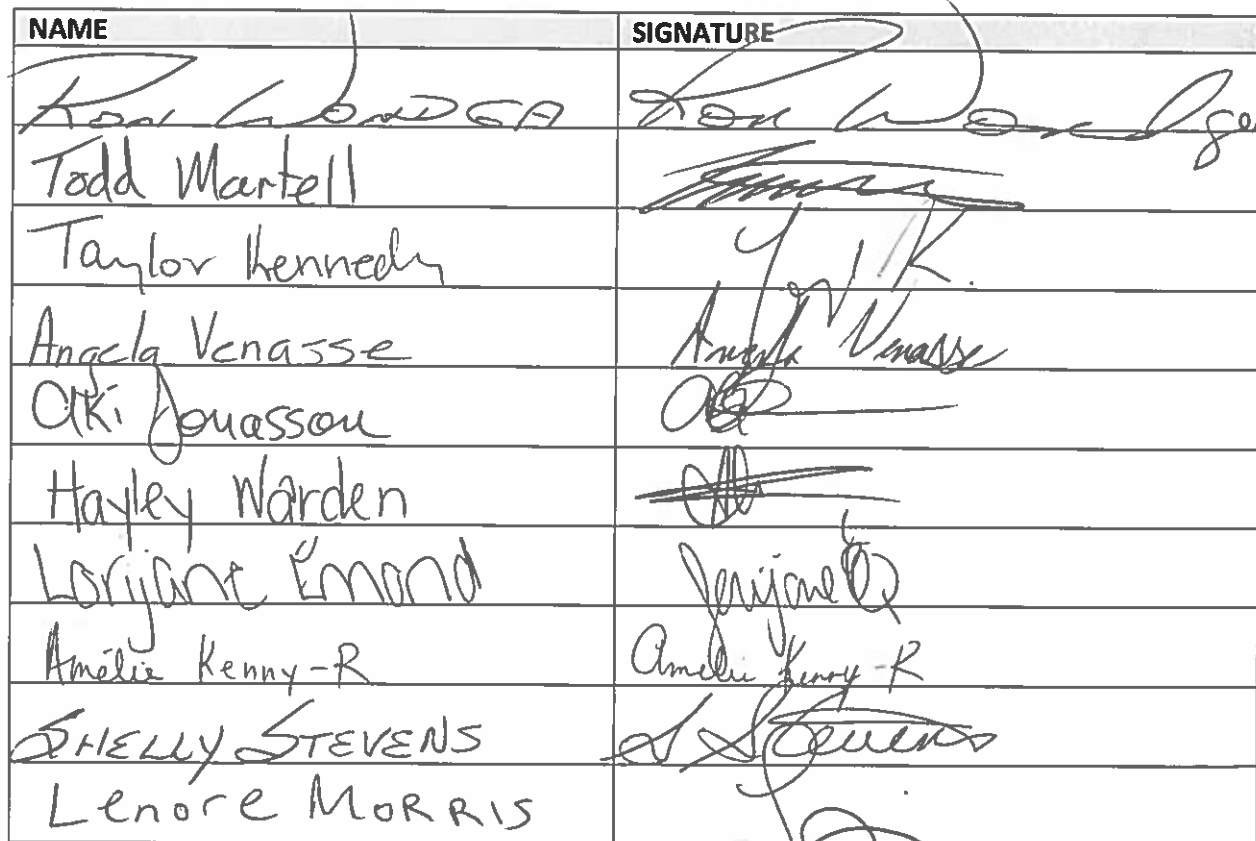 NAME SIGNATURE
Ron Ron
Todd Martell
Taylor Kennedy K.
Angela Venasse Angela Venasse
Aki Jonasson
Hayley Warden
Lorijane Émond Lorijane É
Amélie Kenny-R Amélie Kenny-R
SHELLY STEVENS S Stevens
Lenore MORRIS